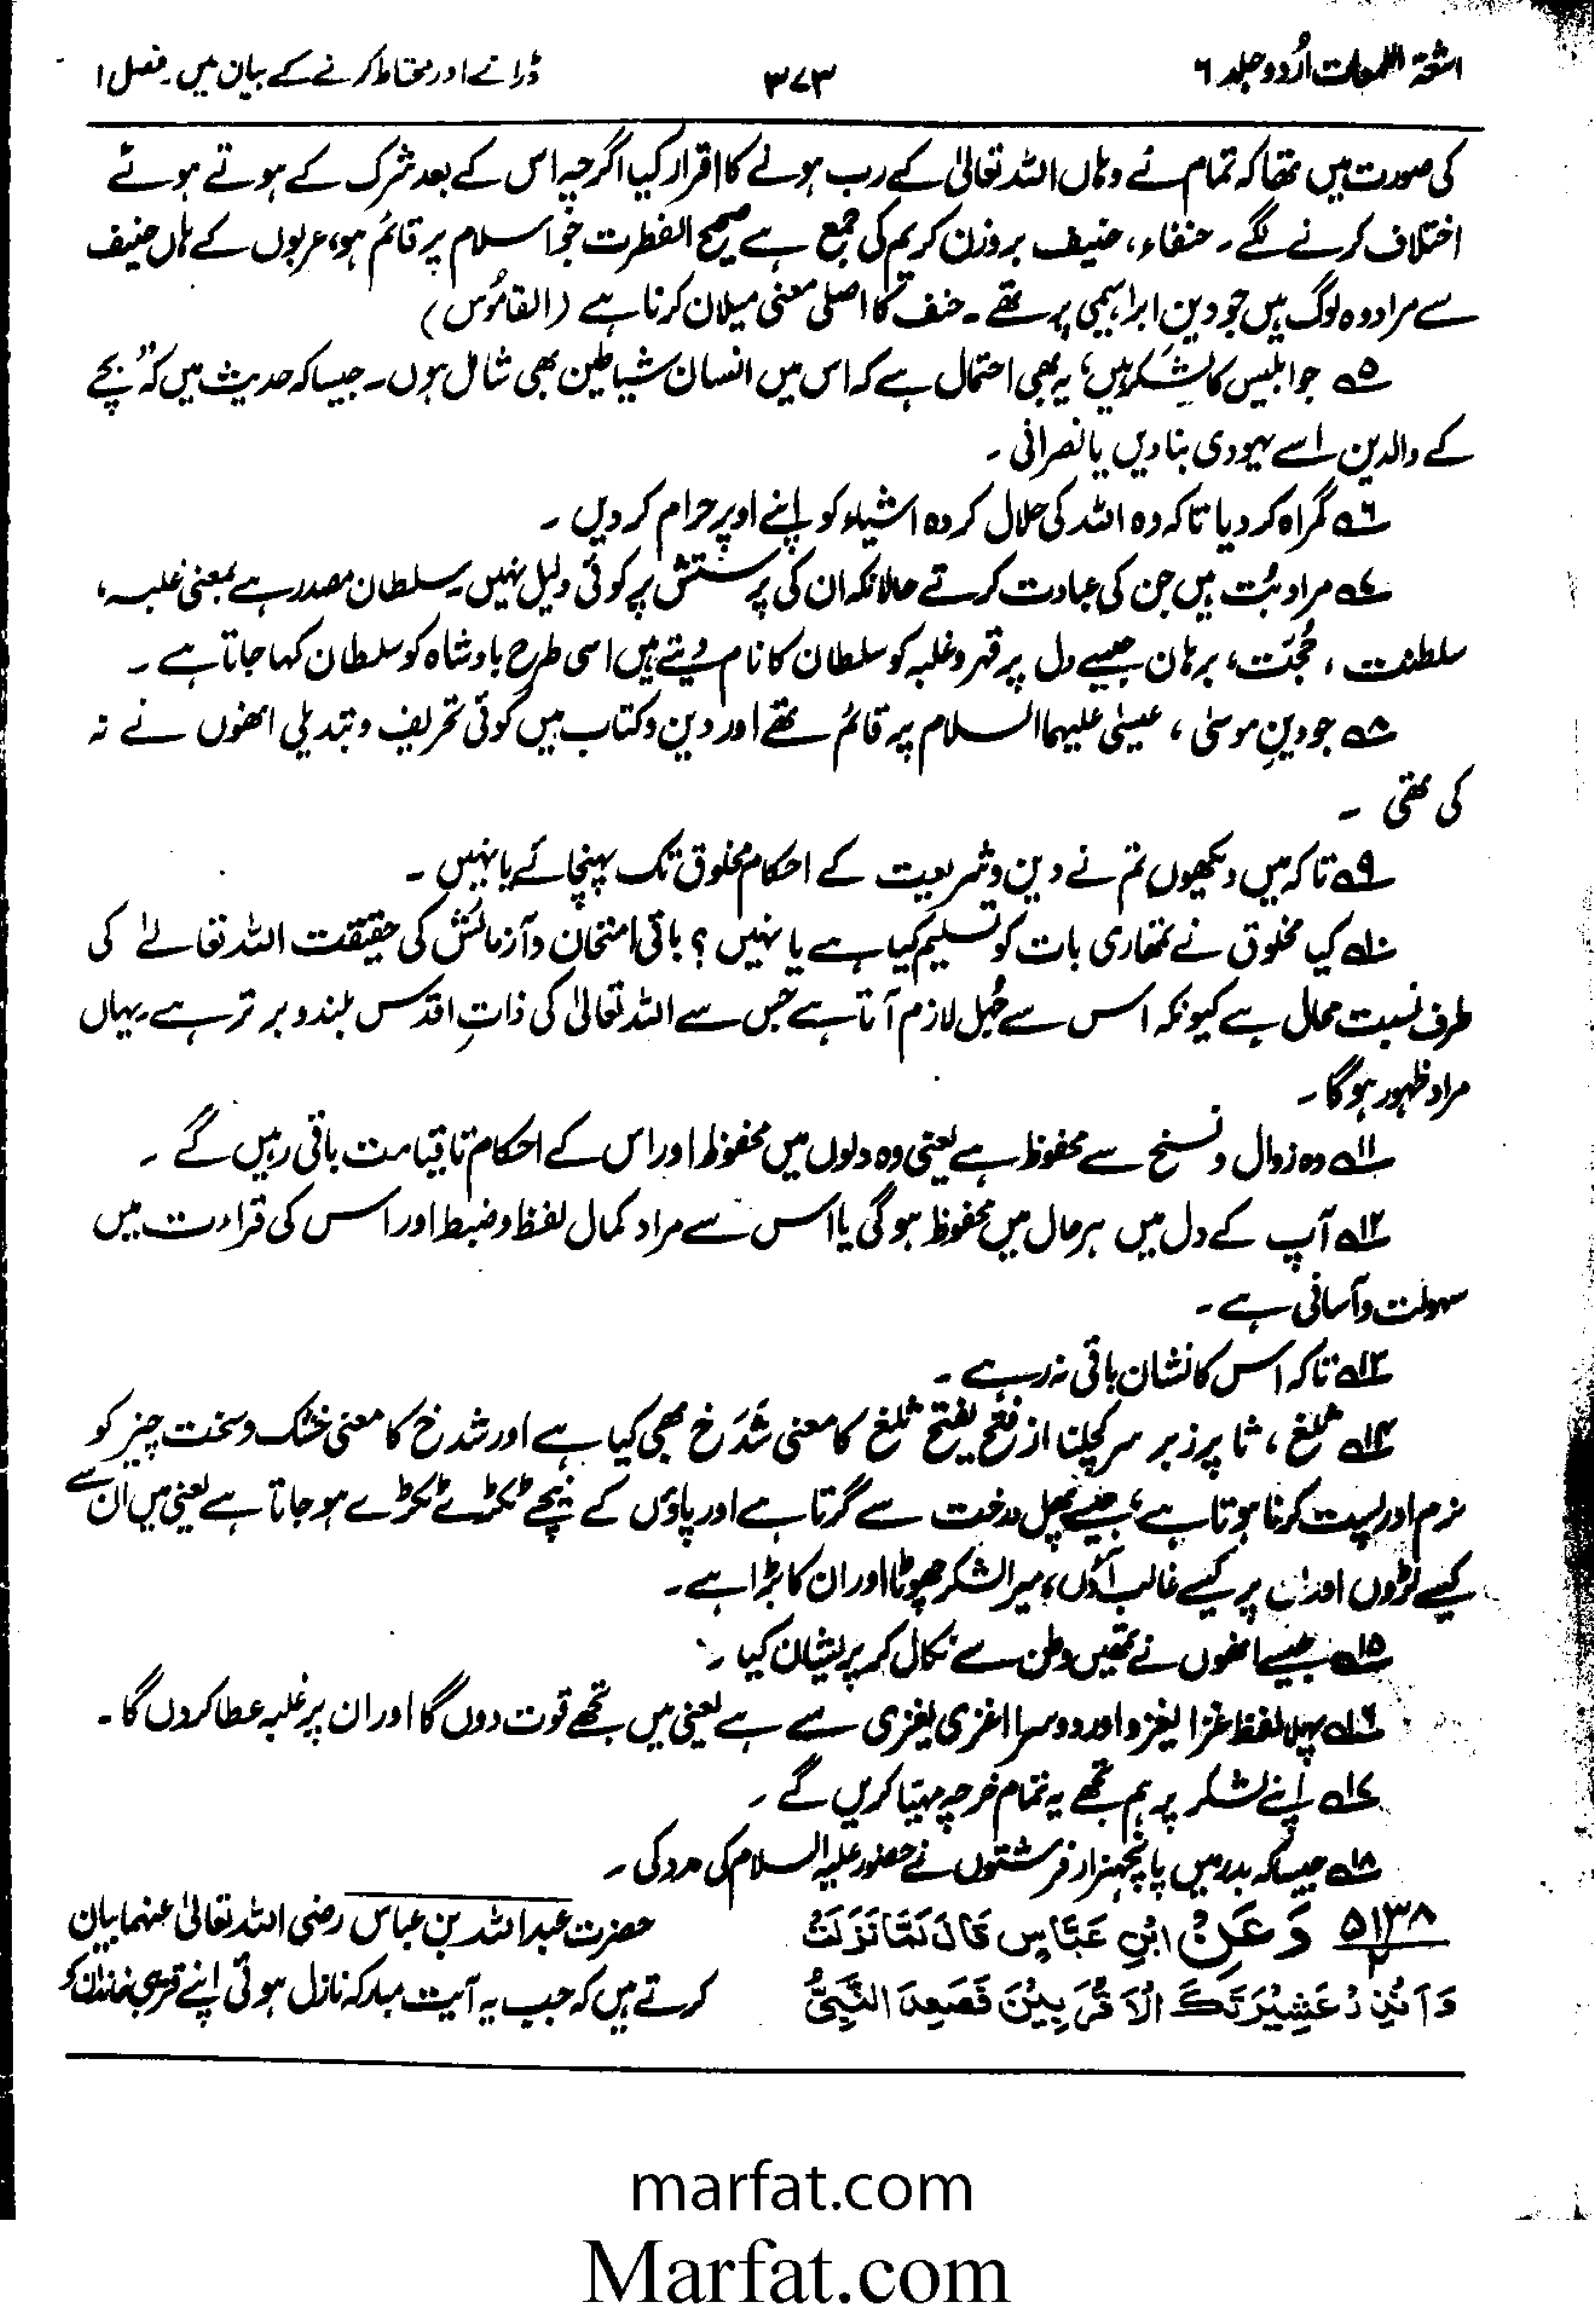 اشعۃ اللمعات اُردو جلد ۶
۳۷۳
ڈرانے اور محتاط کرنے کے بیان میں۔ فصل ۱
کی صورت میں تھا کہ تمام نے وہاں اللہ تعالیٰ کے رب ہونے کا اقرار کیا اگرچہ اس کے بعد شرک کے ہوتے ہوئے
اختلاف کرنے لگے۔ حنفاء، حنیف بروزن کریم کی جمع ہے صحیح الفطرت جو اسلام پر قائم ہو، عربوں کے ہاں حنیف
سے مراد وہ لوگ ہیں جو دینِ ابراہیمی پر تھے۔ حنف کا اصلی معنی میلان کرنا ہے (القاموُس)
۵؎ جو ابلیس کا لشکر ہیں، یہ بھی احتمال ہے کہ اس میں انسان شیاطین بھی شامل ہوں۔ جیسا کہ حدیث میں کہ "بچے
کے والدین اسے یہودی بنا دیں یا نصرانی۔
۶؎ گمراہ کر دیا تاکہ وہ اللہ کی حلال کردہ اشیاء کو اپنے اوپر حرام کر دیں۔
۷؎ مراد بُت ہیں جن کی عبادت کرتے حالانکہ ان کی پرستش پر کوئی دلیل نہیں۔ سلطان مصدر ہے بمعنی غلبہ،
سلطنت، حُجّت، برہان جیسے دل پر قہر و غلبہ کو سلطان کا نام دیتے ہیں اسی طرح بادشاہ کو سلطان کہا جاتا ہے۔
۸؎ جو دینِ موسیٰ، عیسیٰ علیہما السلام پر قائم تھے اور دین و کتاب میں کوئی تحریف و تبدیلی انھوں نے نہ
کی تھی۔
۹؎ تاکہ میں دیکھوں تم نے دین و شریعت کے احکام مخلوق تک پہنچائے یا نہیں۔
۱۰؎ کیا مخلوق نے تمھاری بات کو تسلیم کیا ہے یا نہیں؟ باقی امتحان و آزمائش کی حقیقت اللہ تعالےٰ کی
طرف نسبت محال ہے کیونکہ اس سے جُہل لازم آتا ہے جس سے اللہ تعالیٰ کی ذاتِ اقدس بلند و برتر ہے۔ یہاں
مراد ظہور ہوگا۔
۱۱؎ وہ زوال و نسخ سے محفوظ ہے یعنی وہ دلوں میں محفوظ اور اس کے احکام تا قیامت باقی رہیں گے۔
۱۲؎ آپ کے دل میں ہر حال میں محفوظ ہوگی یا اس سے مراد کمال لفظ و ضبط اور اس کی قراءت میں
سہولت و آسانی ہے۔
۱۳؎ تاکہ اس کا نشان باقی نہ رہے۔
۱۴؎ ثلغ، ثا پر زبر سر کچلنا از فتح یفتح ثلغ کا معنی شَدَخ بھی کیا ہے اور شدخ کا معنی خشک و سخت چیز کو
نرم اور پست کرنا ہوتا ہے، جیسے پھل درخت سے گرتا ہے اور پاؤں کے نیچے ٹکڑے ٹکڑے ہو جاتا ہے یعنی میں ان سے
کیسے لڑوں اور ان پر کیسے غالب آؤں، میرا لشکر چھوٹا اور ان کا بڑا ہے۔
۱۵؎ جیسے انھوں نے تمھیں وطن سے نکال کر پریشان کیا۔
۱۶؎ پہلا لفظ غزا یغزو اور دوسرا اغزی یغزی سے ہے یعنی میں تجھے قوت دوں گا اور ان پر غلبہ عطا کردوں گا۔
۱۷؎ اپنے لشکر پر ہم تجھے یہ تمام خرچہ مہیّا کریں گے۔
۱۸؎ جیسا کہ بدر میں پانچہزار فرشتوں نے حضور علیہ السلام کی مدد کی۔
۵۱۳۸ وَعَنِ ابْنِ عَبَّاسٍ قَالَ لَمَّا نَزَلَتْ
۲
وَاَنْذِرْ عَشِیْرَتَکَ الْاَقْرَبِیْنَ فَصَعِدَ النَّبِیُّ
حضرت عبداللہ بن عباس رضی اللہ تعالیٰ عنہما بیان
کرتے ہیں کہ جب یہ آیت مبارکہ نازل ہوئی اپنے قریبی خاندان کو
marfat.com
Marfat.com